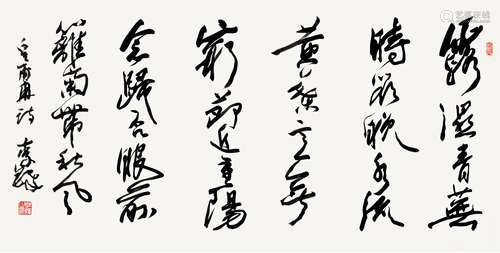 露濕青蕪
時欲晚水流
黄葉意無
窮節近重陽
念歸否眼前
籬菊帶秋風
皇甫冉诗 李鐸